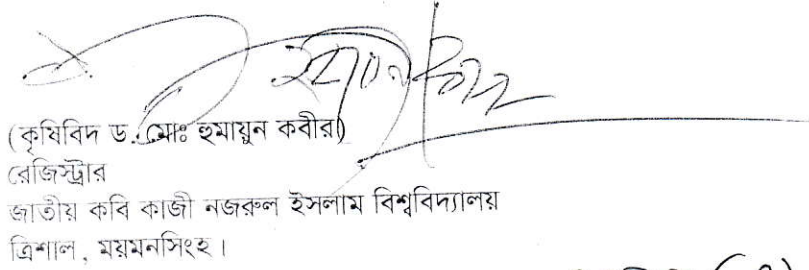 (কৃষিবিদ ড. মোঃ হুমায়ুন কবীর)
রেজিস্ট্রার
জাতীয় কবি কাজী নজরুল ইসলাম বিশ্ববিদ্যালয়
ত্রিশাল, ময়মনসিংহ।